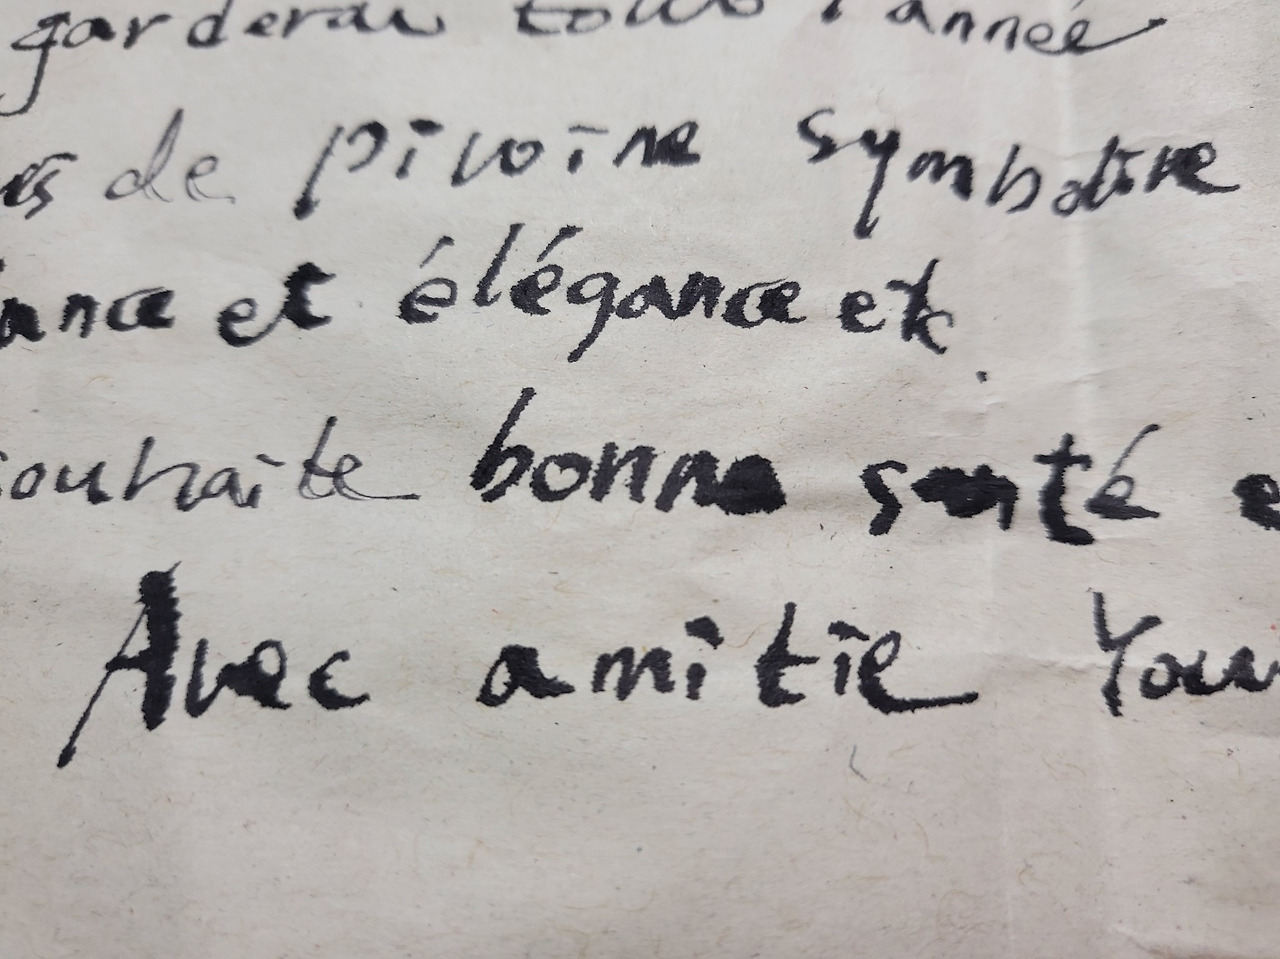 garderai toute l'année
de pivoine symbolise
et élégance et
souhaite bonne santé e
Avec amitié You